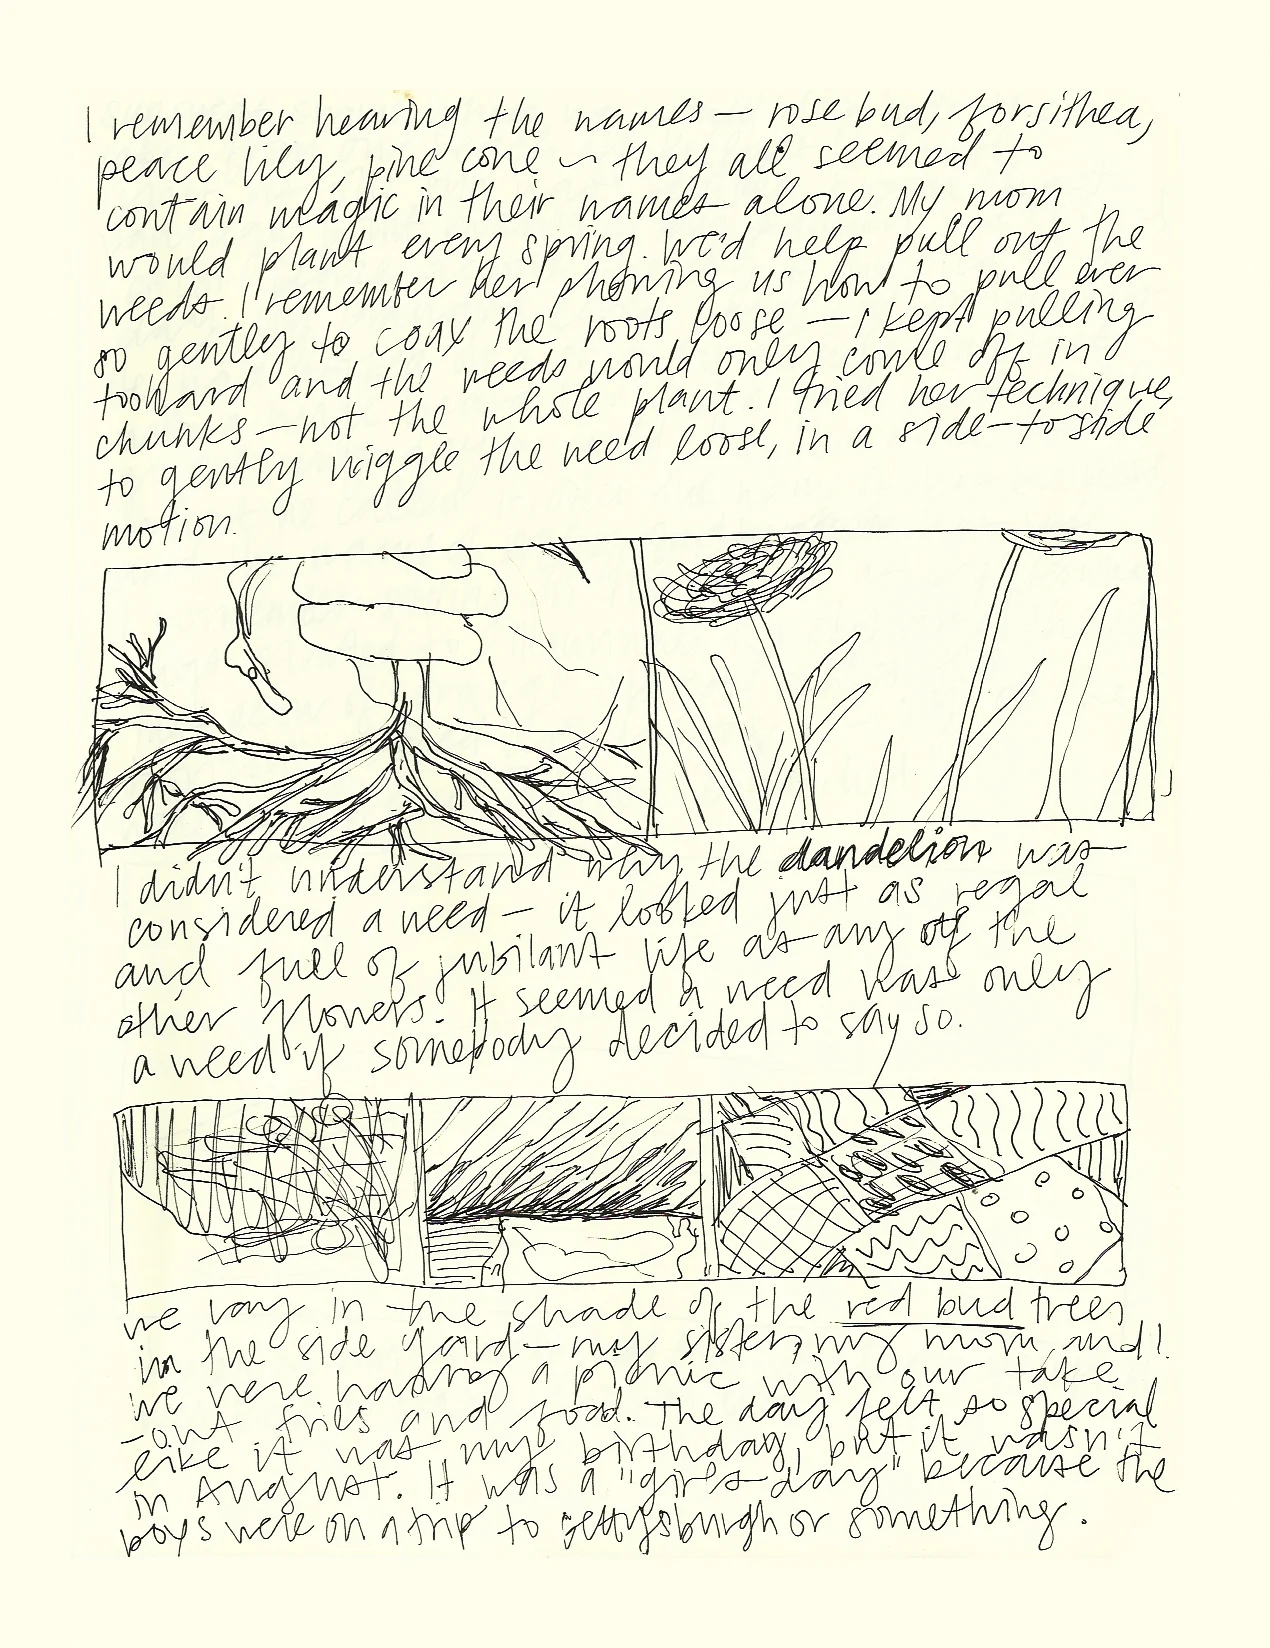 I remember hearing the names — rose bud, forsithea,
peace lily, pine cone ~ they all seemed to
contain magic in their names alone. My mom
would plant every spring. We'd help pull out the
weeds. I remember her showing us how to pull ever
so gently to coax the roots loose — I kept pulling
too hard and the weeds would only come off in
chunks — not the whole plant. I tried her technique,
to gently wiggle the weed loose, in a side-to side
motion.
I didn't understand why the dandelion was
considered a weed — it looked just as regal
and full of jubilant life as any of the
other flowers. It seemed a weed was only
a weed if somebody decided to say so.
we lay in the shade of the red bud trees
in the side yard — my sister, my mom, and I.
we were having a picnic with our take
-out fries and food. The day felt so special
like it was my birthday, but it wasn't
in August. It was a "girls day" because the
boys were on a trip to Gettysburgh or something.